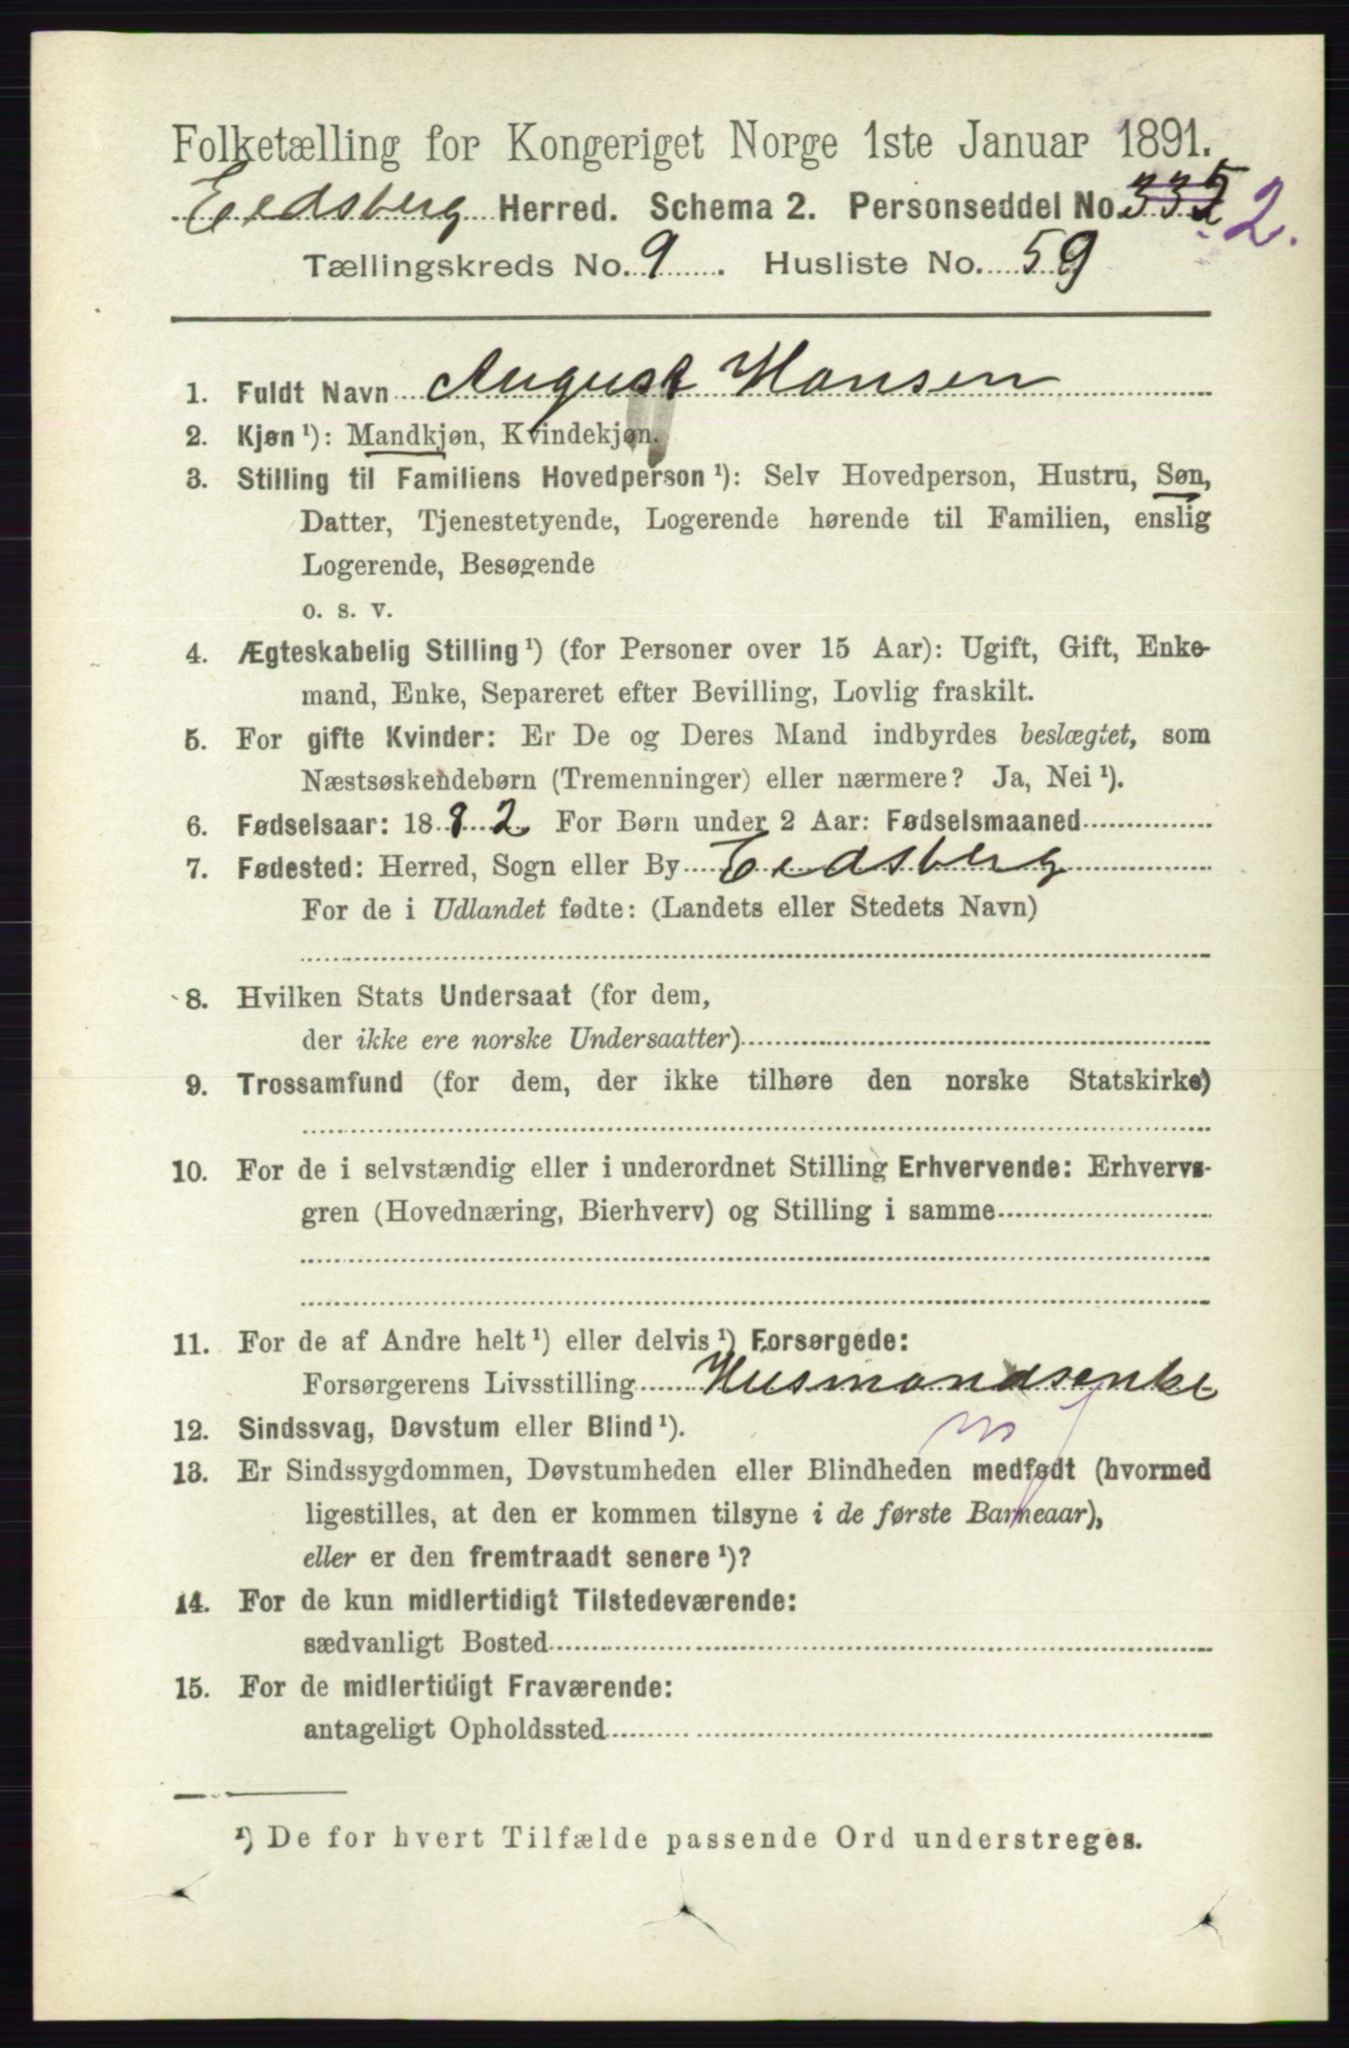 Folketælling for Kongeriget Norge 1ste Januar 1891.
Eidsberg Herred. Schema 2. Personseddel No. 3352 2.
Tællingskreds No. 9. Husliste No. 59
1. Fuldt Navn August Hansen
2. Kjøn ¹): Mandkjøn, Kvindekjøn.
3. Stilling til Familiens Hovedperson ¹): Selv Hovedperson, Hustru, Søn,
Datter, Tjenestetyende, Logerende hørende til Familien, enslig
Logerende, Besøgende
o. s. v.
4. Ægteskabelig Stilling ¹) (for Personer over 15 Aar): Ugift, Gift, Enke-
mand, Enke, Separeret efter Bevilling, Lovlig fraskilt.
5. For gifte Kvinder: Er De og Deres Mand indbyrdes beslægtet, som
Næstsøskendebørn (Tremenninger) eller nærmere? Ja, Nei ¹).
6. Fødselsaar: 1882 For Børn under 2 Aar: Fødselsmaaned
7. Fødested: Herred, Sogn eller By Eidsberg
For de i Udlandet fødte: (Landets eller Stedets Navn)
8. Hvilken Stats Undersaat (for dem,
der ikke ere norske Undersaatter)
9. Trossamfund (for dem, der ikke tilhøre den norske Statskirke)
10. For de i selvstændig eller i underordnet Stilling Erhvervende: Erhvervs-
gren (Hovednæring, Bierhverv) og Stilling i samme
11. For de af Andre helt ¹) eller delvis ¹) Forsørgede:
Forsørgerens Livsstilling Husmandsenke
12. Sindssvag, Døvstum eller Blind ¹).
13. Er Sindssygdommen, Døvstumheden eller Blindheden medfødt (hvormed
ligestilles, at den er kommen tilsyne i de første Barneaar),
eller er den fremtraadt senere ¹)?
14. For de kun midlertidigt Tilstedeværende:
sædvanligt Bosted
15. For de midlertidigt Fraværende:
antageligt Opholdssted
¹) De for hvert Tilfælde passende Ord understreges.